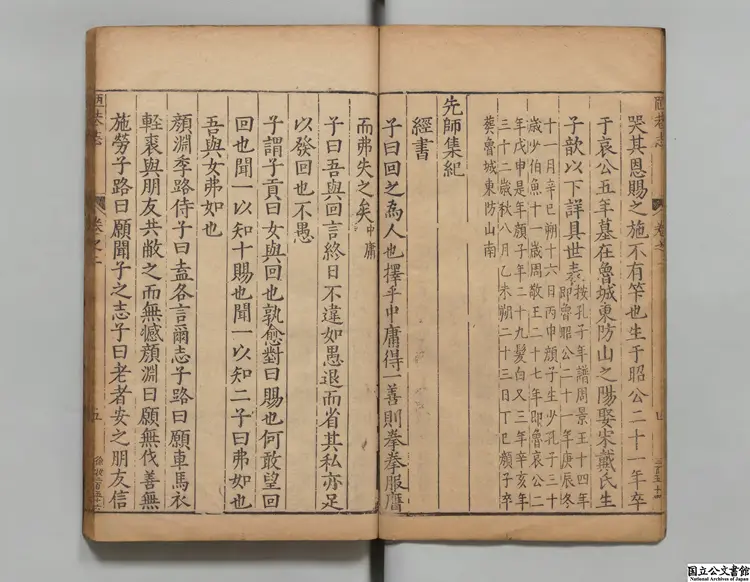 陋巷志
卷之二
四
哭其恩賜之施不有笇也生于昭公二十一年卒
于哀公五年墓在魯城東防山之陽娶宋戴氏生
子歆以下詳具世表
按孔子年譜周景王十四年
即魯昭公二十一年庚辰冬
十一月辛巳朔十六日丙申顏子生少孔子三十
歲少伯魚十一歲周敬王二十七年即魯哀公二
年戊申是年顏子年二十九髮白又三年辛亥年
三十二歲秋八月乙未朔二十三日丁巳顏子卒
葬魯城東防山南
先師集紀
經書
子曰回之為人也擇乎中庸得一善則拳拳服膺
而弗失之矣中庸
子曰吾與回言終日不違如愚退而省其私亦足
以發回也不愚
子謂子貢曰女與回也孰愈對曰賜也何敢望回
回也聞一以知十賜也聞一以知二子曰弗如也
吾與女弗如也
顏淵季路侍子曰盍各言爾志子路曰願車馬衣
輕裘與朋友共敝之而無憾顏淵曰願無伐善無
施勞子路曰願聞子之志子曰老者安之朋友信
陋巷志
卷之二
五
国立公文書館
National Archives of Japan